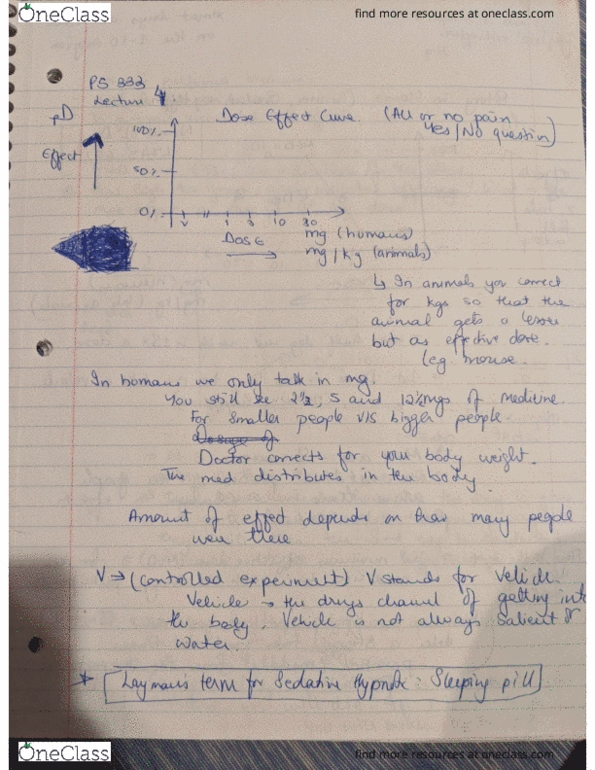 OneClass
find more resources at oneclass.com
PS 333
Lecture 4
pD
Effect
Dose Effect Curve. (All or no pain
Yes/No question)
100%
50%
0%
V 1 3 10 30
DOSE
mg (humans)
mg/kg (animals)
↳ In animals you correct
for kgs so that the
animal gets a
but as effective dose.
eg. mouse.
In humans we only talk in mg.
You still see 2½, 5 and 12½mgs of medicine.
For smaller people V/S bigger people.
Dosage of
Doctor corrects for your body weight.
The med distributes in the body.
Amount of effect depends on how many people
were there
V → (controlled experiment) V stands for Vehicle.
Vehicle → the drugs channel of getting into
the body. Vehicle is not always or
water.
* Layman's term for Sedative Hypnotic: Sleeping pill
OneClass
find more resources at oneclass.com